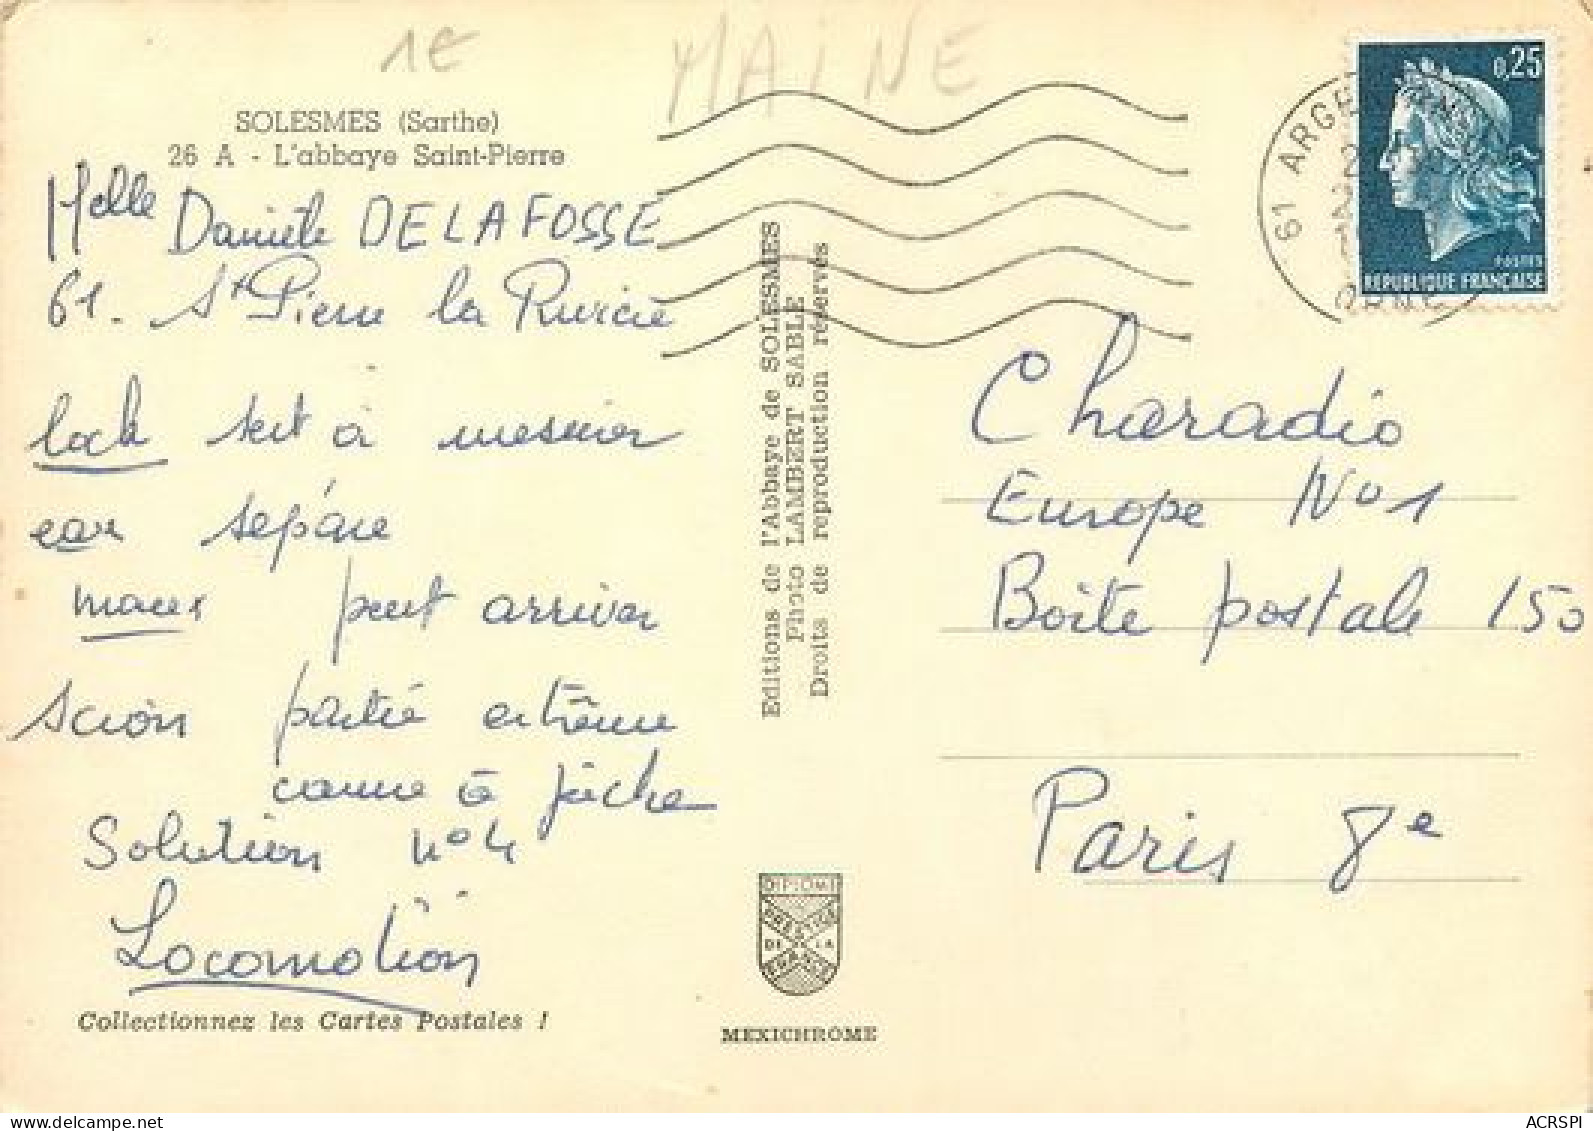 1€
MAINE
SOLESMES (Sarthe)
26 A - L'abbaye Saint-Pierre
Melle Danièle DELAFOSSE
61. St Pierre la Rivière
lock sert à mesurer
eau sépare
maux peut arriver
scion partie extrême
canne à pêche
Solution n°4
Locomotion
Collectionnez les Cartes Postales !
Editions de l'Abbaye de SOLESMES
Photo LAMBERT SABLE
Droits de reproduction réservés
DIPLOME
PRESTIGE
DE LA
FRANCE
MEXICHROME
0,25
POSTES
REPUBLIQUE FRANÇAISE
61 ARGE
ORNE
Charadio
Europe N°1
Boite postale 150
Paris 8e
ACRSPI